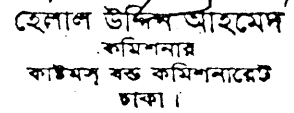 হেলাল উদ্দিন আহমেদ
কমিশনার
কাষ্টমস্ বন্ড কমিশনারেট
ঢাকা ।